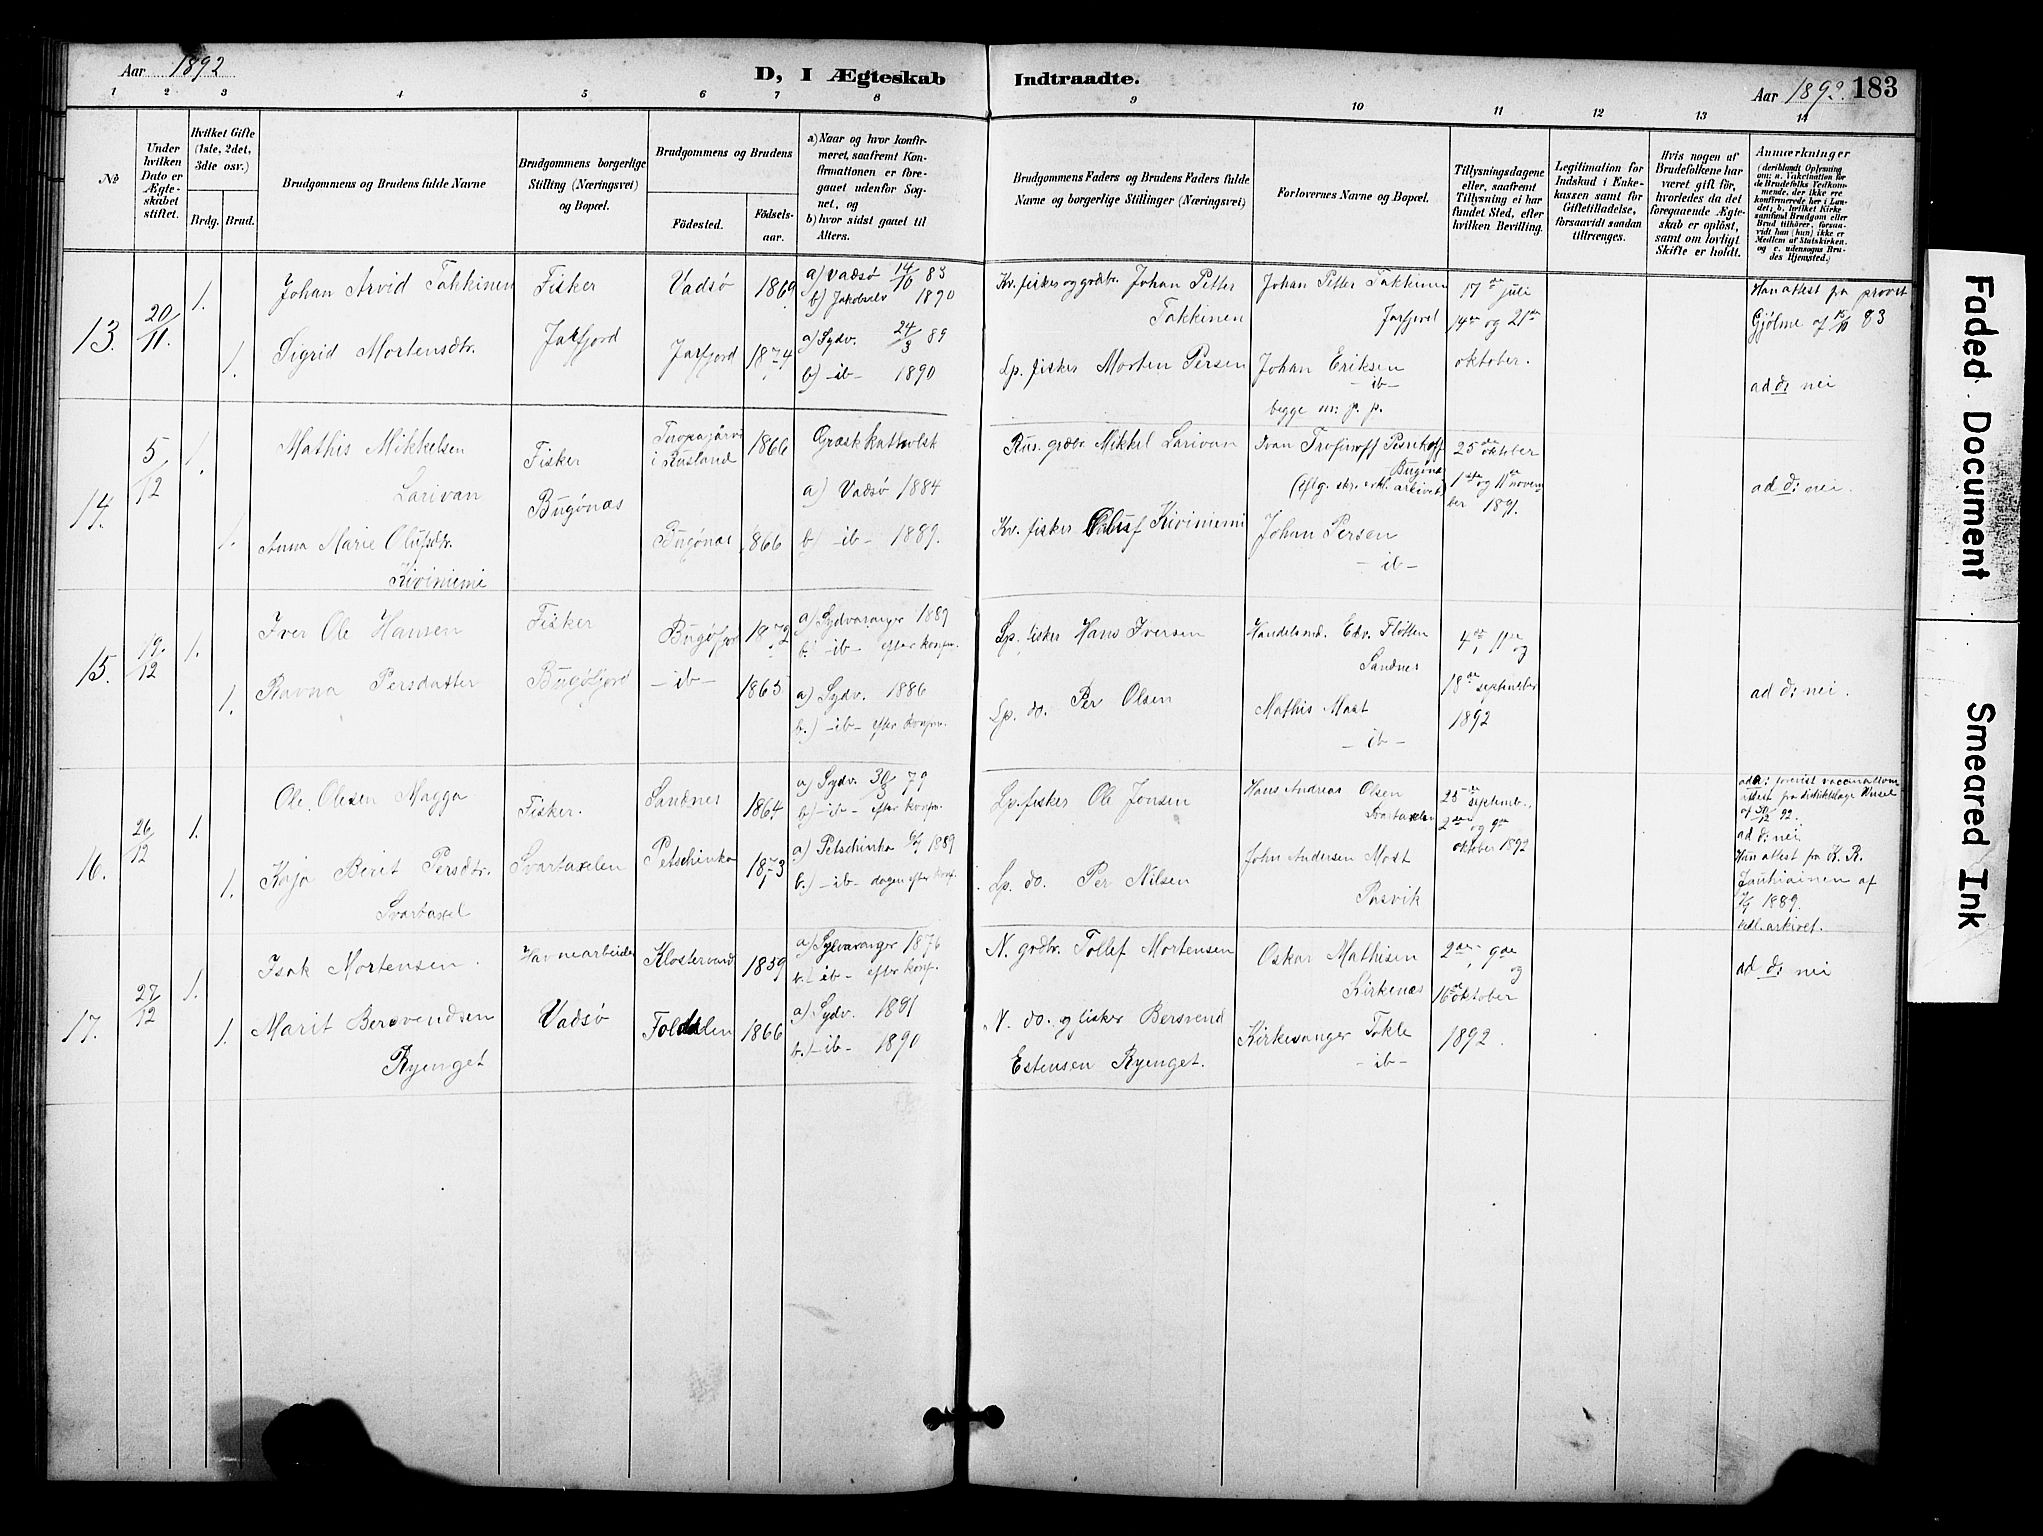 Aar 1892
D, I Ægteskab
Indtraadte.
Aar 1892. 183
1 2 3 4 5 6 7 8 9 10 11 12 13 14
No
Under hvilken Dato er Ægteskabet stiftet.
Hvilket Gifte (1ste, 2det, 3die osv.)
Brdg. Brud.
Brudgommens og Brudens fulde Navne
Brudgommens borgerlige Stilling (Næringsvei) og Bopæl.
Brudgommens og Brudens
Födested.
Födselsaar.
a) Naar og hvor konfirmeret, saafremt Konfirmationen er foregaaet udenfor Sognet, og
b) hvor sidst gaaet til Alters.
Brudgommens Faders og Brudens Faders fulde Navne og borgerlige Stillinger (Næringsvei)
Forlovernes Navne og Bopæl.
Tillysningsdagene eller, saafremt Tillysning ei har fundet Sted, efter hvilken Bevilling.
Legitimation for Indskud i Enkekassen samt for Giftetilladelse, forsaavidt saadan tiltrænges.
Hvis nogen af Brudefolkene har været gift før, hvorledes da det foregaaende Ægteskab er oplöst, samt om lovligt Skifte er holdt.
Anmærkninger
(deriblandt Oplysning om: a. Vakcination for de Brudefolks Vedkommende, der ikke ere konfirmerede her i Landet; b. hvilket Kirkesamfund Brudgom eller Brud tilhörer, forsaavidt han (hun) ikke er Medlem af Statskirken, og c. udensogns Brudes Hjemsted.)
13. 20/11. 1.
Johan Arvid Takkinen
Fisker
Vadsø 1869
a) Vadsø 14/10 83
b) Jakobselv 1890
Kv. fisker og grdbr. Johan Petter
Takkinen
Johan Petter Takkinen
Jarfjord
17de juli
14de og 21de
oktober.
Han attest fra provst
Gjølme af 15/10 83
1.
Sigrid Mortensdtr.
Jarfjord
Jarfjord 1874
a) Sydv. 24/3 89
b) -ib- 1890
Lp. fisker Morten Persen
Johan Eriksen
-ib-
begge m: p. p.
ad d: nei
14. 5/12 1.
Mathis Mikkelsen
Larivan
Fisker
Bugönæs
i Rusland 1866
Græsk katholsk
Rus. grdbr. Mikkel Larivan
Ivan
Bugönæs
25de oktober
1ste og 11te novem-
ber 1891.
ad d: nei.
1.
Anna Marie Olufsdtr.
Kiviniemi
Bugönæs 1866
a) Vadsø 1884
b) -ib- 1889.
Kv. fisker Oluf Kiviniemi
Johan Persen
-ib-
15. 19/12 1.
Iver Ole Hansen
Fisker
Bugöfjord
Bugöfjord 1872
a) Sydvaranger 1889
b. -ib- efter konfm.
Lp. fisker Hans Iversen
Handelsmd. Edv. Fløtten
Sandnes
4de, 11te og
18de september
1892
ad d: nei.
1.
Ravna Persdatter
-ib- 1865
a) Sydv. 1886
b.) -ib- efter konfm.
Lp. do. Per Olsen
Mathis Mast
-ib-
16. 26/12 1.
Ole Olesen Magga
Fisker.
Svartaxelen
Sandnes 1864
a) Sydv. 79
b) -ib- efter konfm.
Lp. fisker Ole Jonsen
Hans Andreas Olsen
Svartaxelen
25de septemb.,
2den og 9de
oktober 1892
ad a: forevist vaccinations
attest fra distriktslæge
af 92.
ad d: nei
Han attest fra K. R.
af
1889.
vedl. arkivet.
1.
Kaja Berit Persdtr.
Svartaxel
Petschinka 1873
a) Petschinka 1889
b.) -ib- dagen efter konf.
Lp. do. Per Nilsen
John Andersen Mast
Pasvik
17. 27/12 1.
Isak Mortensen.
Havnearbeider
Vadsø
Klostervand 1859
a) Sydvaranger 1876
b. -ib- efter konf.
N. grdbr. Tollef Mortensen
Oskar Mathisen
Kirkenæs
2den, 9de
og
16de oktober
1892.
ad d: nei
1.
Marit Bersvendsen
Ryenget
Foldalen 1866
a) Sydv. 1891
b. -ib- 1890
N. do. og fisker Bersvend
Estensen Ryenget.
Kirkesanger Tokle
-ib-
Faded Document
Smeared Ink